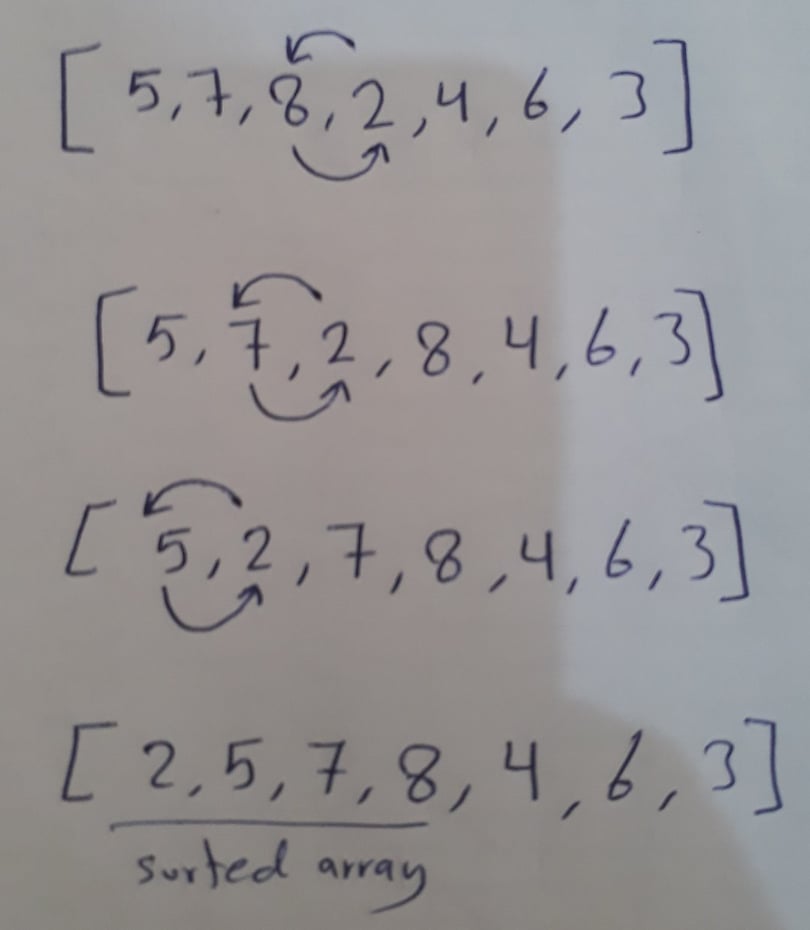 [ 5, 7, 8, 2, 4, 6, 3 ]
[ 5, 7, 2, 8, 4, 6, 3 ]
[ 5, 2, 7, 8, 4, 6, 3 ]
[ 2, 5, 7, 8, 4, 6, 3 ]
sorted array